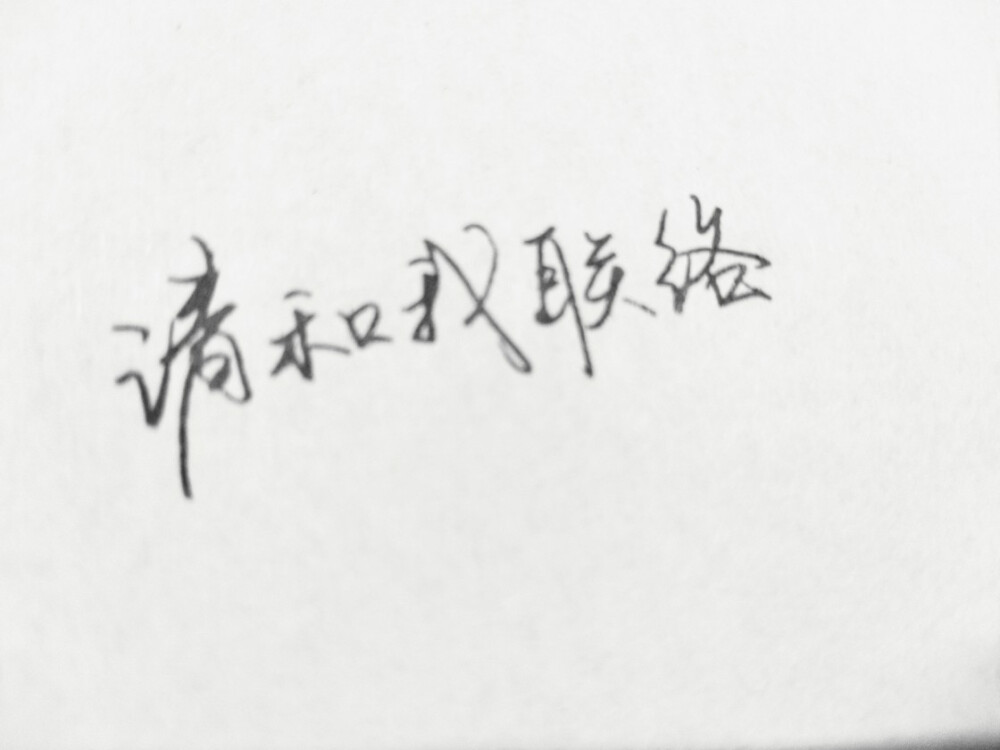 请和我联络